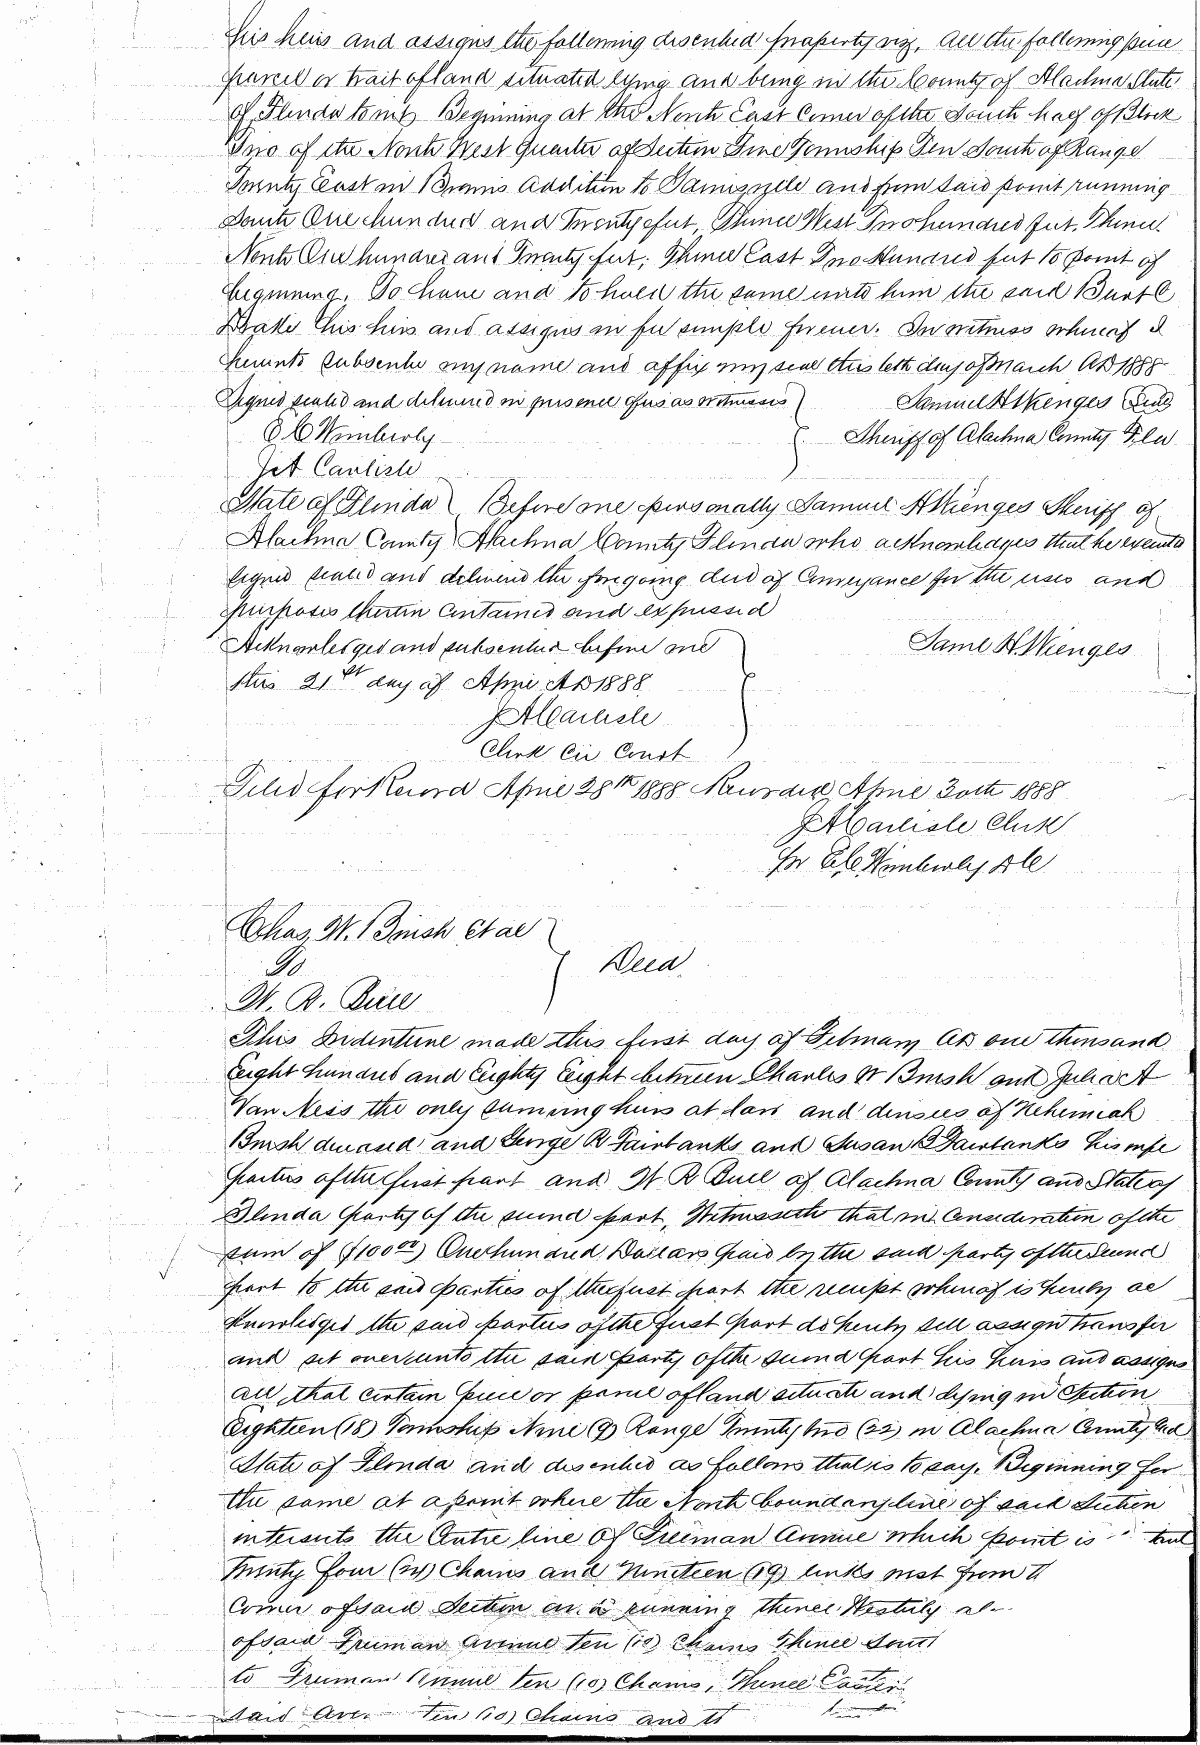 his heirs and assigns the following described property viz, All the following piece
parcel or trait of land situated lying and being in the County of Alachua State
of Florida towit Beginning at the North East Corner of the South half of Block
Two of the North West Quarter of Section Five Township Ten South of Range
Twenty East in Browns Addition to Gainesville and from said point running
South One hundred and Twenty feet, Thence West Two hundred feet, Thence
North One hundred and Twenty feet; Thence East Two Hundred feet to point of
beginning, To have and to hold the same unto him the said Burt C
Drake his heirs and assigns in fee simple forever. In witness whereof I
hereunto subscribe my name and affix my seal this 6th day of March AD 1888
Signed sealed and delivered in presence of us as witnesses
Samuel H Wienges Seal
E C Wimberly
Sheriff of Alachua County Fla
Jet Carlisle
State of Florida Before me personally Samuel H Wienges Sheriff of
Alachua County Alachua County Florida who acknowledges that he executed
signed sealed and delivered the foregoing deed of Conveyance for the uses and
purposes therein contained and expressed
Acknowledged and subscribed before me
Saml H Wienges
this 21st day of April AD 1888
J A Carlisle
Clerk Cir Court
Filed for Record April 28th 1888 Recorded April 30th 1888
J A Carlisle Clerk
for E C Wimberly D C
Chas. W. Brush et al
To
Deed
W. R. Buell
This Indenture made this first day of February AD one thousand
Eight hundred and Eighty Eight between Charles W Brush and Julia A
Van Ness the only surviving heirs at law and devisees of Nehemiah
Brush deceased and George R Fairbanks and Susan B Fairbanks his wife
parties of the first part and W R Buell of Alachua County and State of
Florida party of the second part, Witnesseth that in Consideration of the
sum of ($100.00) One hundred Dollars paid by the said party of the Second
part to the said parties of the first part the receipt whereof is hereby ac
knowledged the said parties of the first part do hereby sell assign transfer
and set over unto the said party of the second part his heirs and assigns
all that certain piece or parcel of land situate and lying in Section
Eighteen (18) Township Nine (9) Range Twenty two (22) in Alachua County and
State of Florida and described as follows that is to say. Beginning for
the same at a point where the North boundary line of said Section
intersects the Centre line of Freeman Avenue which point is
Twenty four (24) Chains and Nineteen (19) links west from
Corner of said Section and running thence Westerly
of said Freeman Avenue Ten (10) Chains Thence South
to Freeman Avenue Ten (10) Chains, Thence Easter
said Ave. Ten (10) Chains and